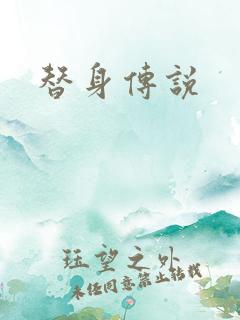 替身傳說
珏望之外
未经同意禁止转载